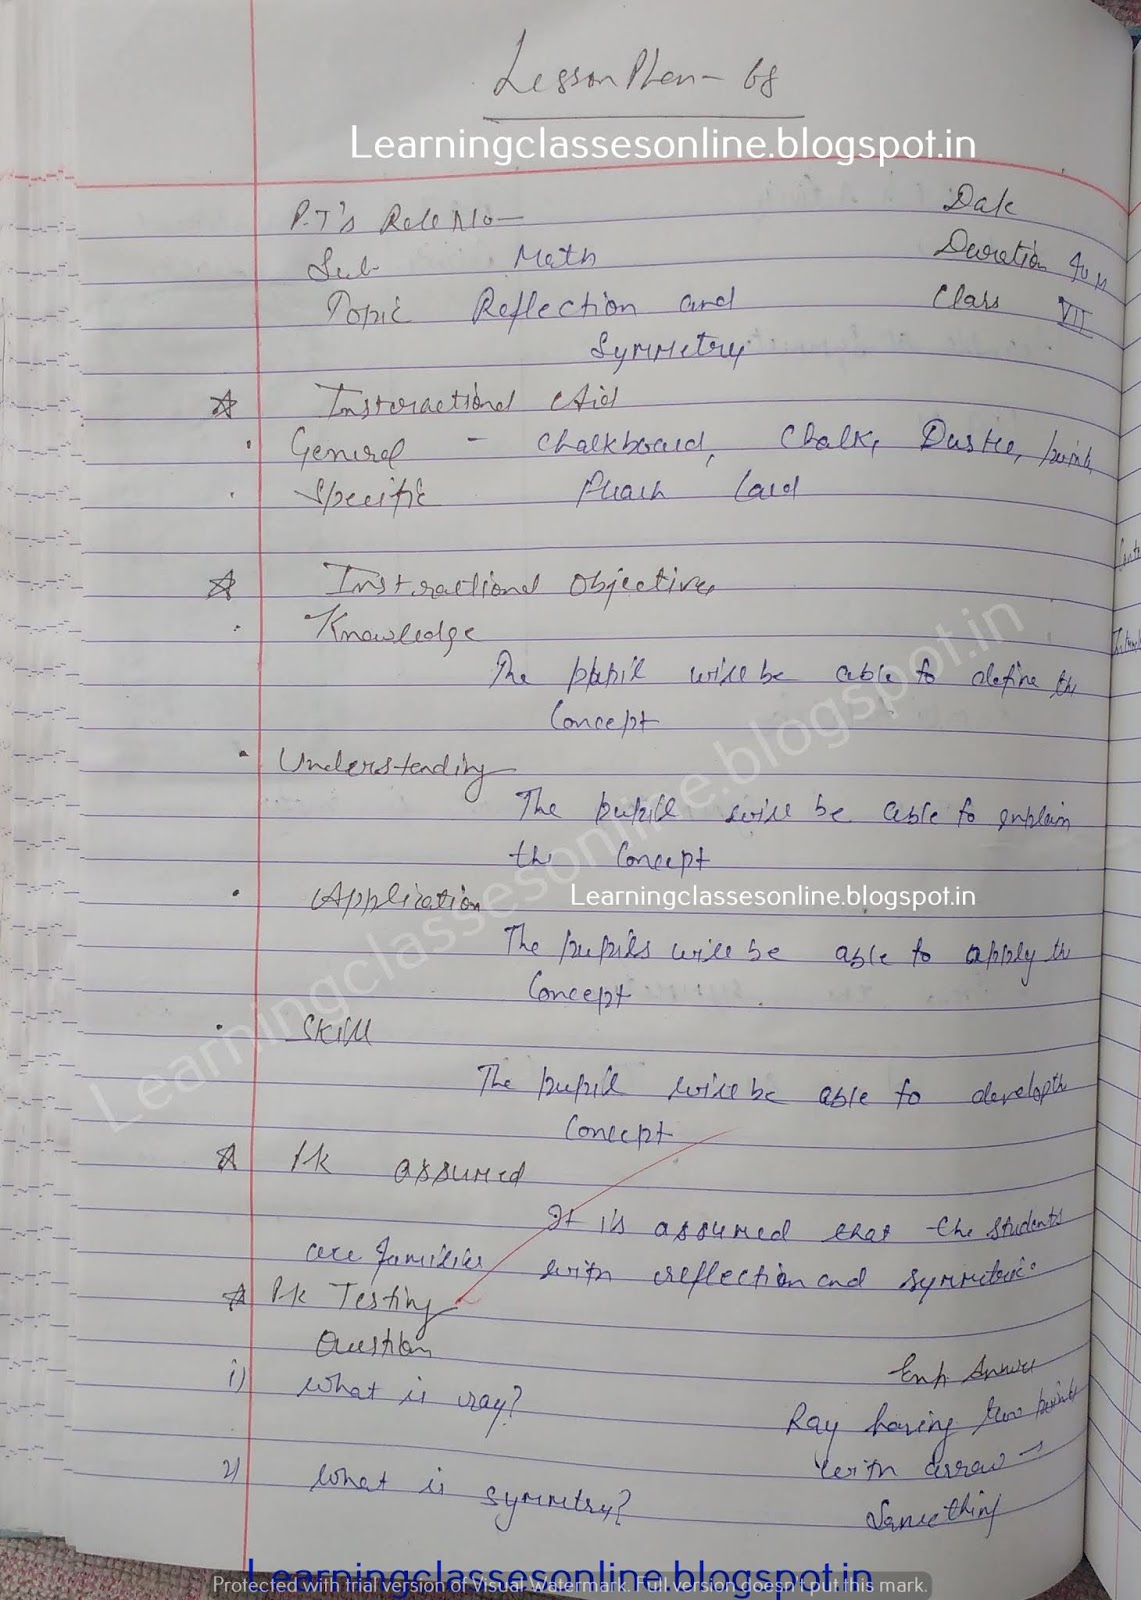 Lesson Plan - 68
Learningclassesonline.blogspot.in
P.T's Roll No - Date
Sub. Math Duration 40 M
Topic Reflection and Class VII
Symmetry
Instructional Aid
General - Chalkboard, Chalk, Duster,
Specific Flash Card
Instructional Objectives
Knowledge
The pupil will be able to define the
Concept
Understanding
The pupil will be able to explain
the Concept
Application
Learningclassesonline.blogspot.in
The pupils will be able to apply the
Concept
Skill
The pupil will be able to develop the
Concept
Learningclassesonline.blogspot.in
P.k assumed
It is assumed that the students
are familier with reflection and symmetric.
P.k Testing
Question Exp Answer
i) What is ray? Ray having two points
with arrow →
2) What is symmetry? Something
Learningclassesonline.blogspot.in
Protected with trial version of Visual Watermark. Full version doesn't put this mark.